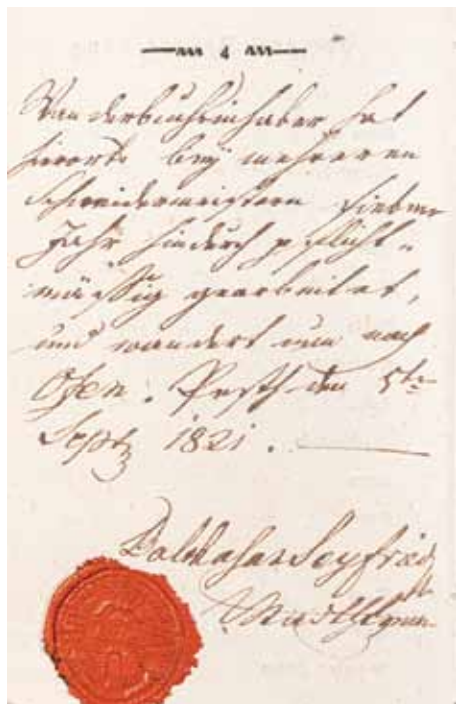 4
Wanderbuchinhaber hat
hierorts bey mehreren
Schneidermeistern sieben
Jahr hindurch pflicht=
mässig gearbeitet,
und wandert nun nach
Ofen. Pesth den 5te
Sept 1821.
Balthasar Seyfried